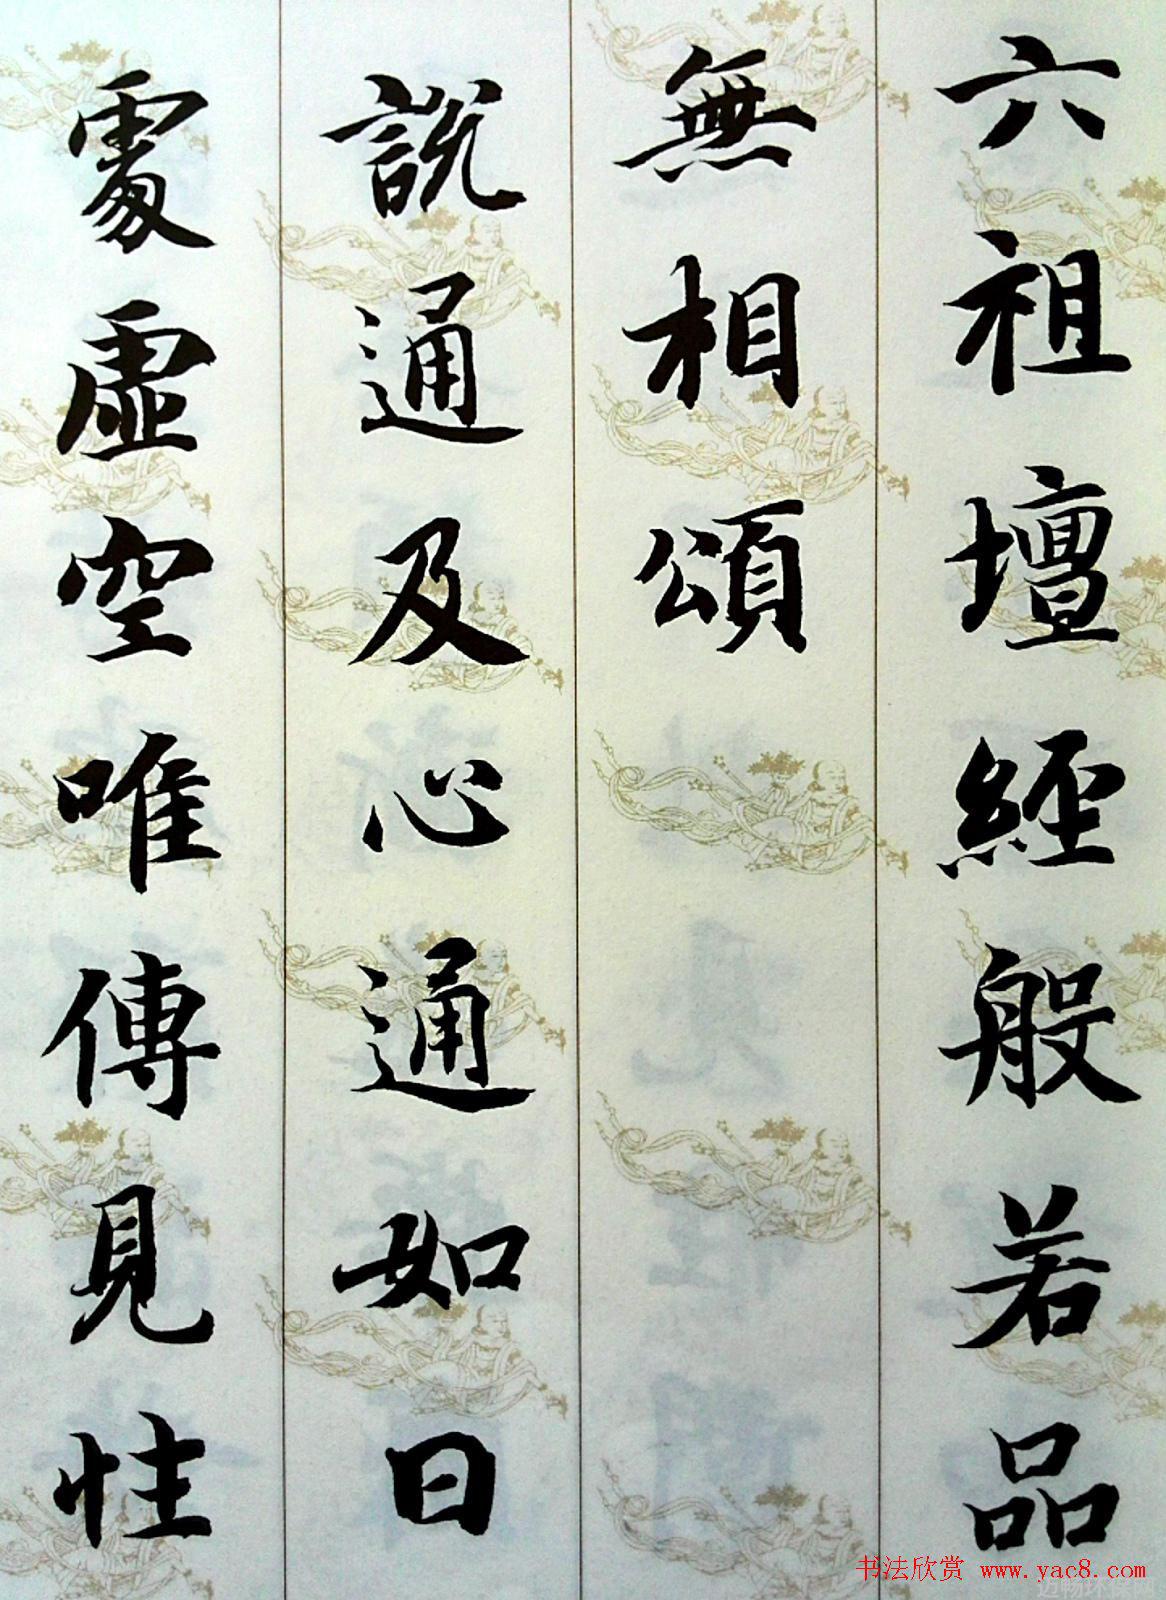 六祖壇經般若品
無相頌
說通及心通如日
處虛空唯傳見性
书法欣赏 www.yac8.com